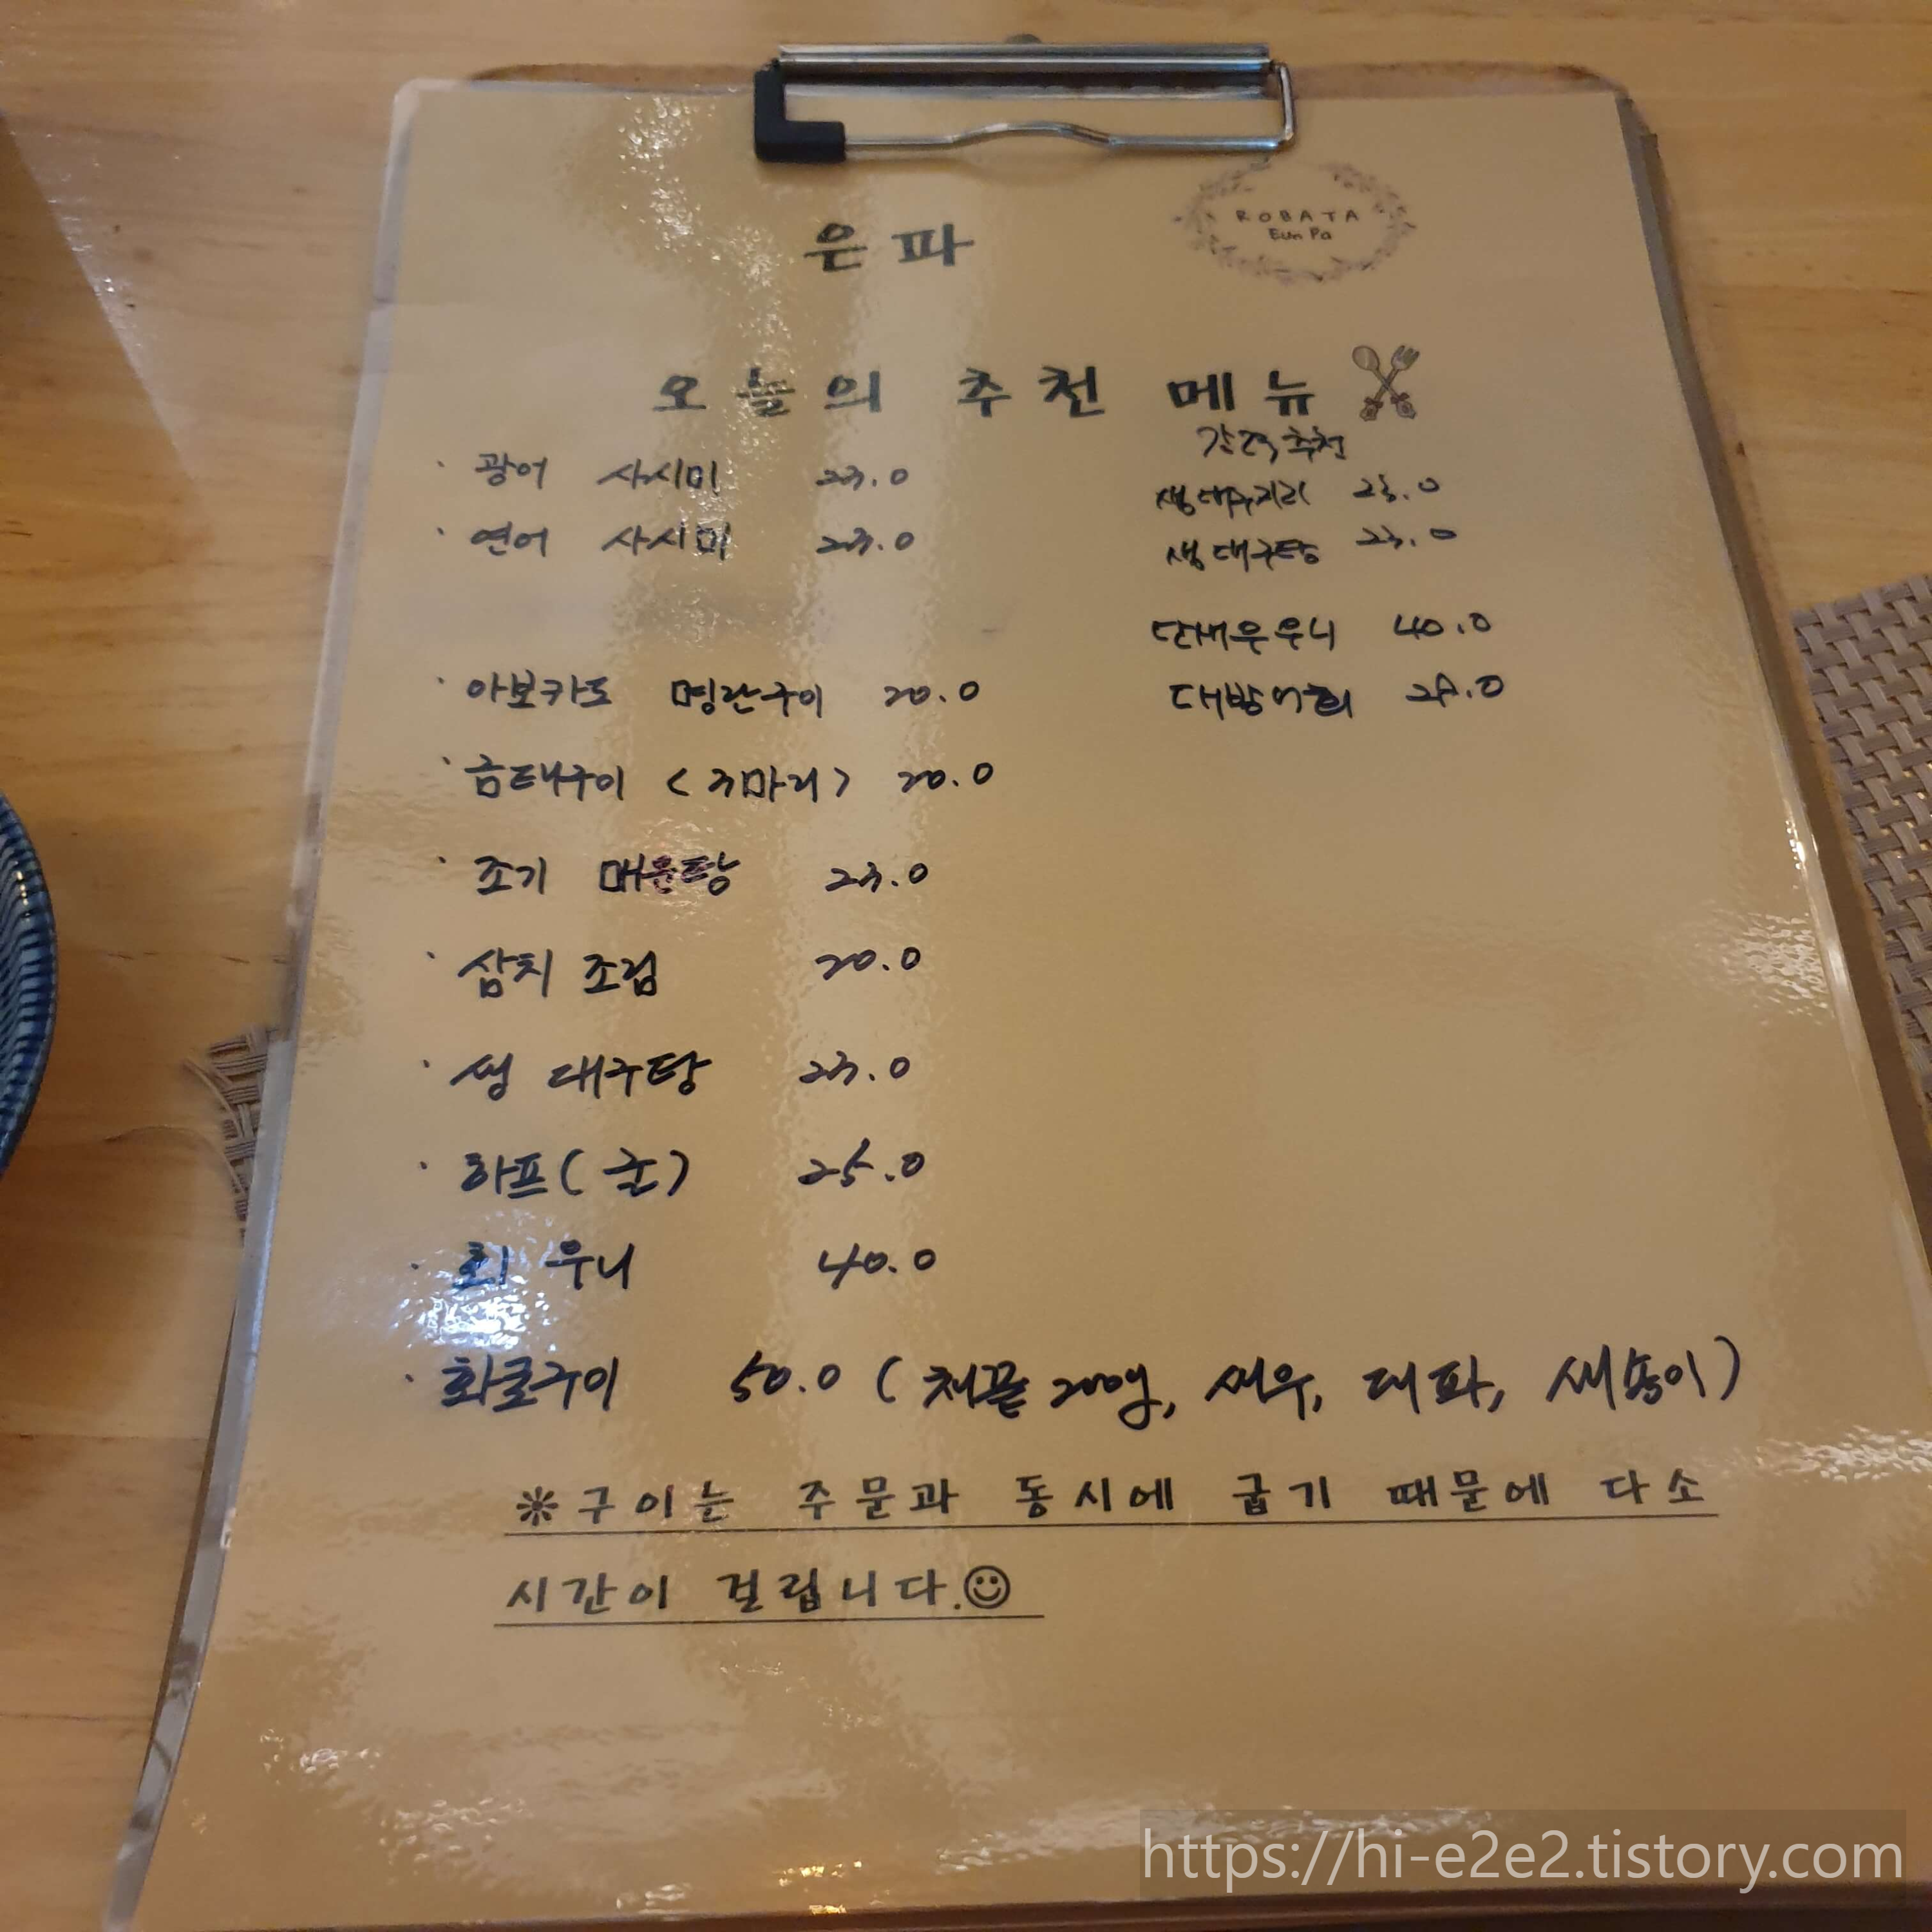 ROBATA
Eun Pa
은파
오늘의 추천 메뉴
강력추천
· 광어 사시미 23.0
생대구지리 23.0
· 연어 사시미 23.0
생대구탕 23.0
단새우우니 40.0
· 아보카도 명란구이 20.0
대방어회 28.0
· 금태구이 <2마리> 20.0
· 조기 매운탕 23.0
· 삼치 조림 20.0
· 생 대구탕 23.0
· 하프(굴) 25.0
· 회 우니 40.0
· 화로구이 50.0 (채끝 200g, 새우, 대파, 새송이)
※구이는 주문과 동시에 굽기 때문에 다소
시간이 걸립니다.☺
https://hi-e2e2.tistory.com